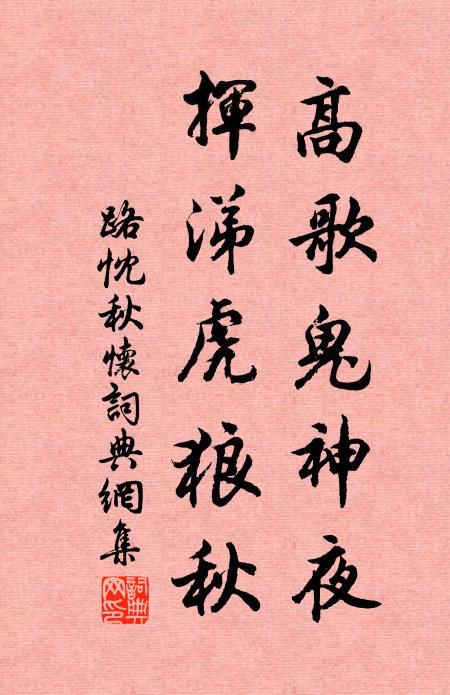 高歌鬼神夜
揮涕虎狼秋
路忱秋懷詞典網集
詞典网印